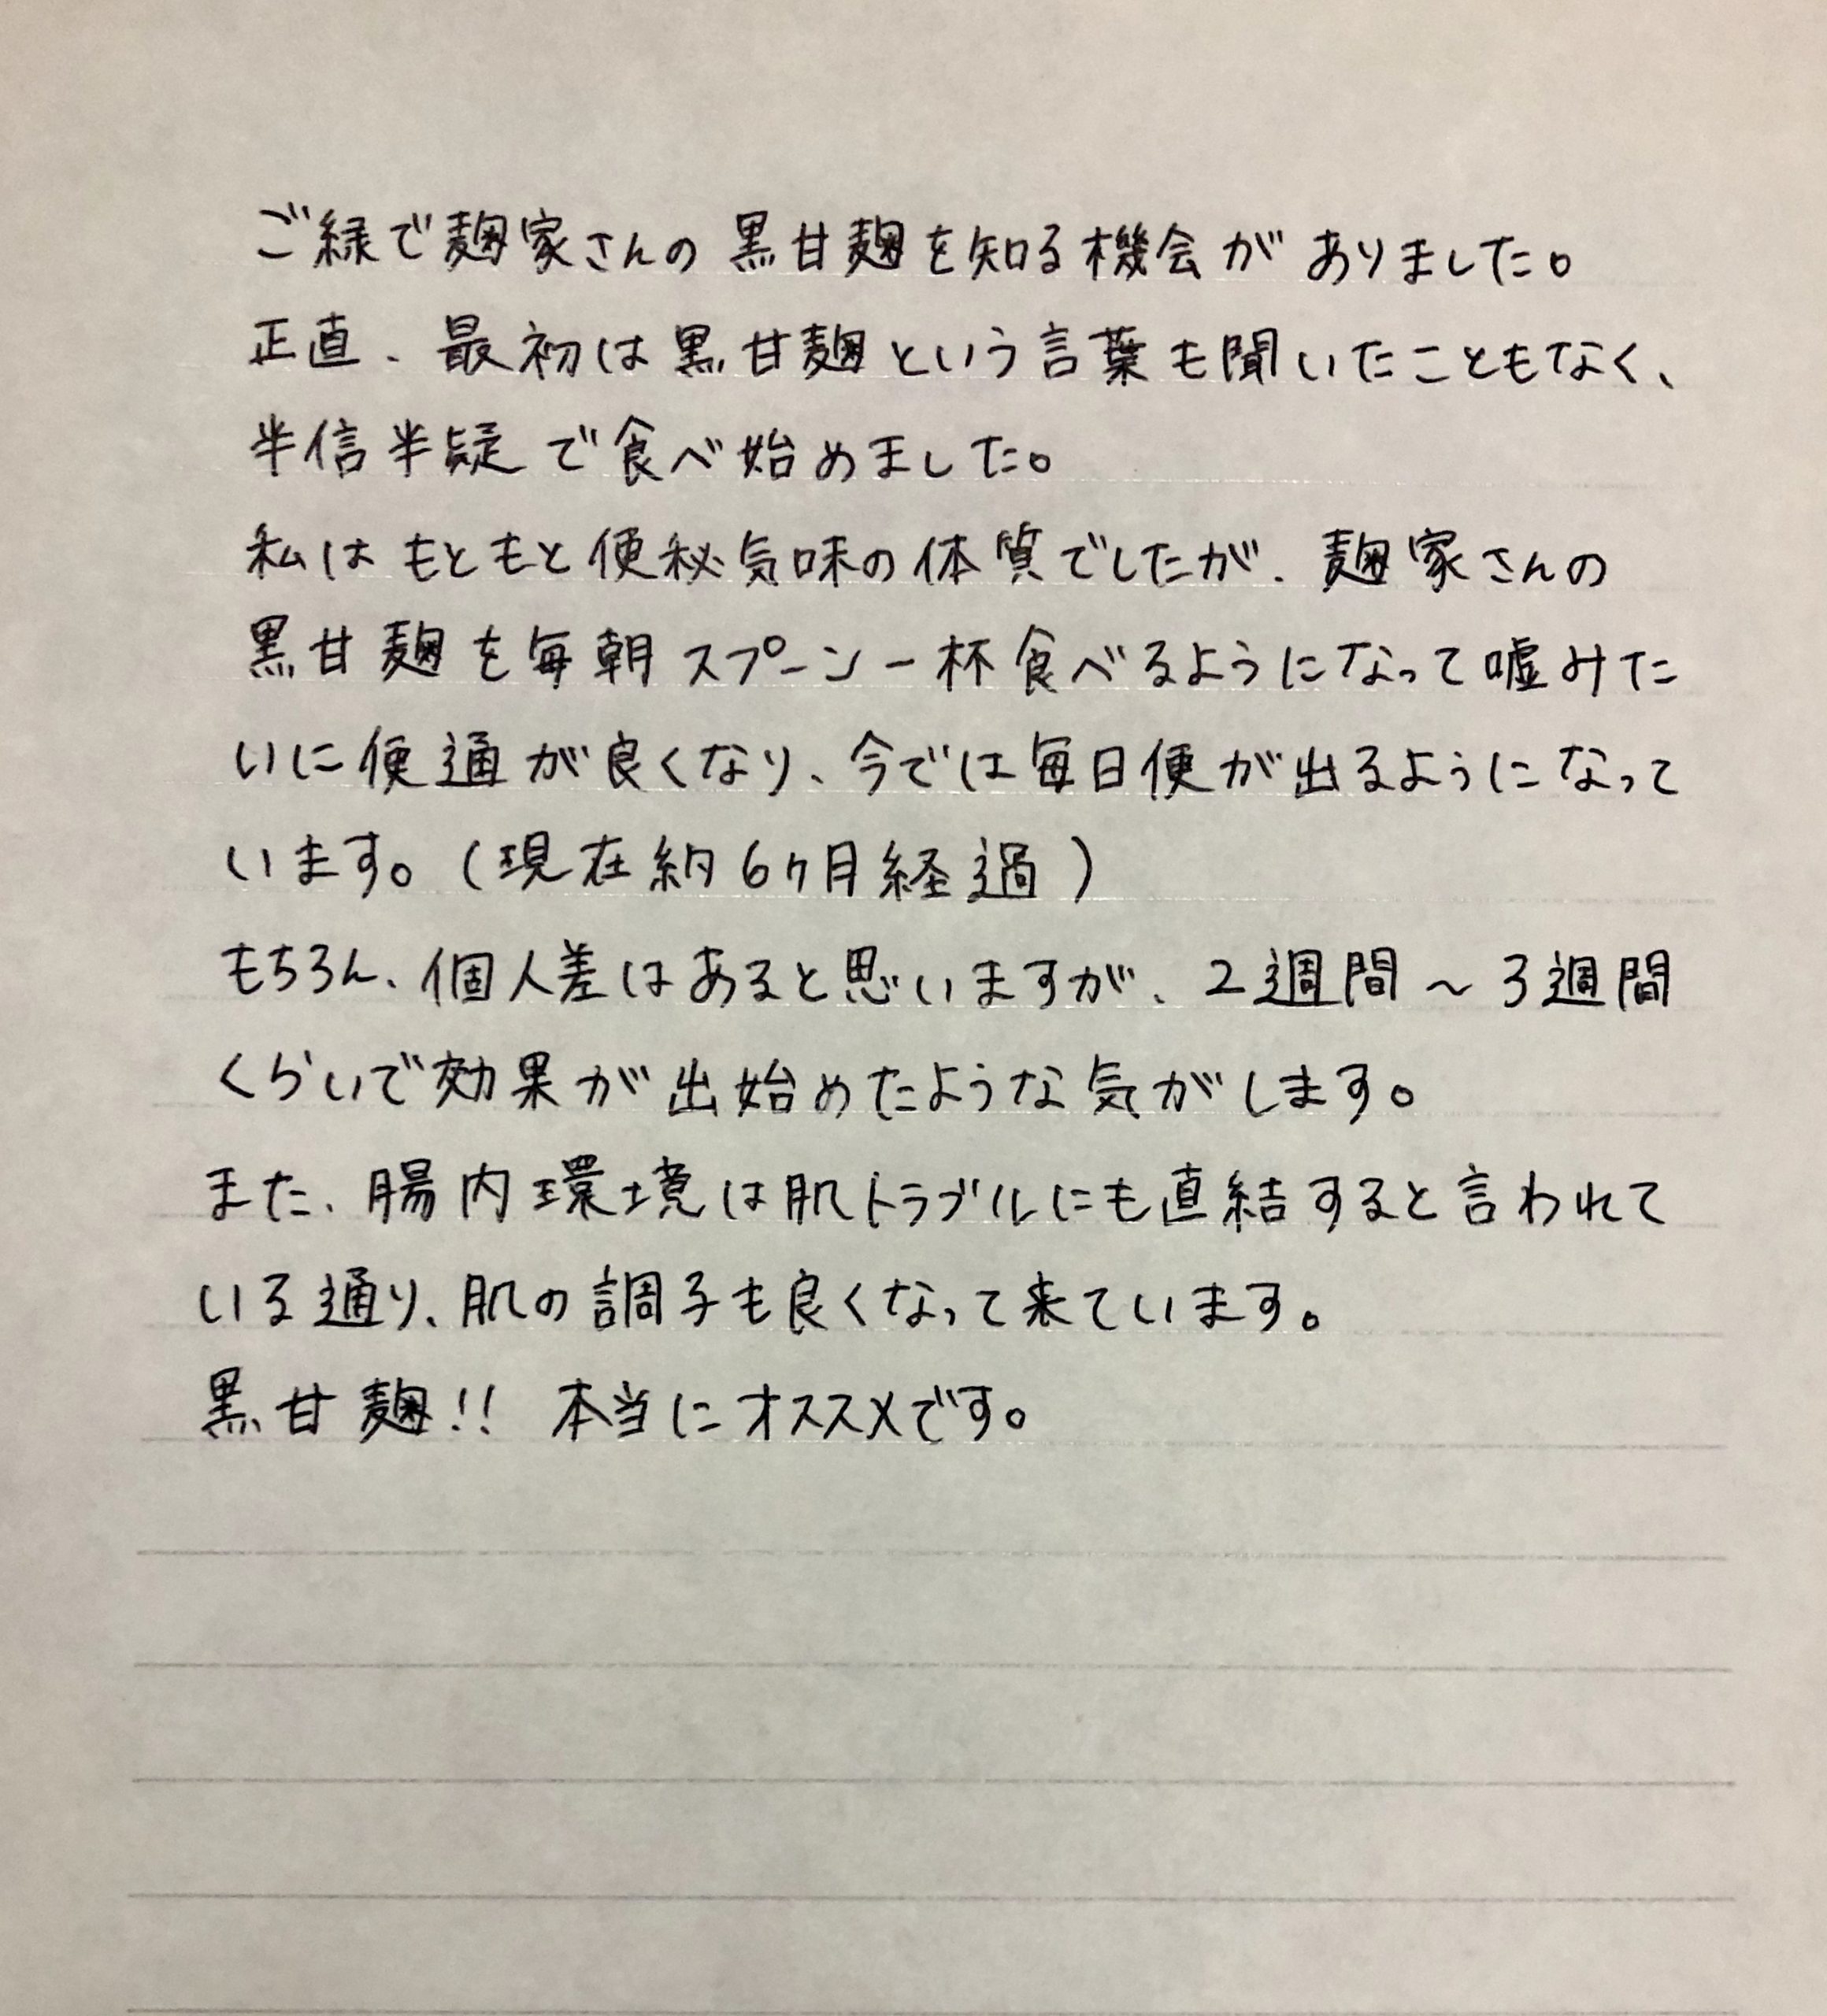 ご縁で麹家さんの黒甘麹を知る機会がありました。
正直、最初は黒甘麹という言葉も聞いたこともなく、
半信半疑で食べ始めました。
私はもともと便秘気味の体質でしたが、麹家さんの
黒甘麹を毎朝スプーン一杯食べるようになって嘘みた
いに便通が良くなり、今では毎日便が出るようになって
います。(現在約6ヶ月経過)
もちろん、個人差はあると思いますが、2週間～3週間
くらいで効果が出始めたような気がします。
また、腸内環境は肌トラブルにも直結すると言われて
いる通り、肌の調子も良くなって来ています。
黒甘麹!! 本当にオススメです。